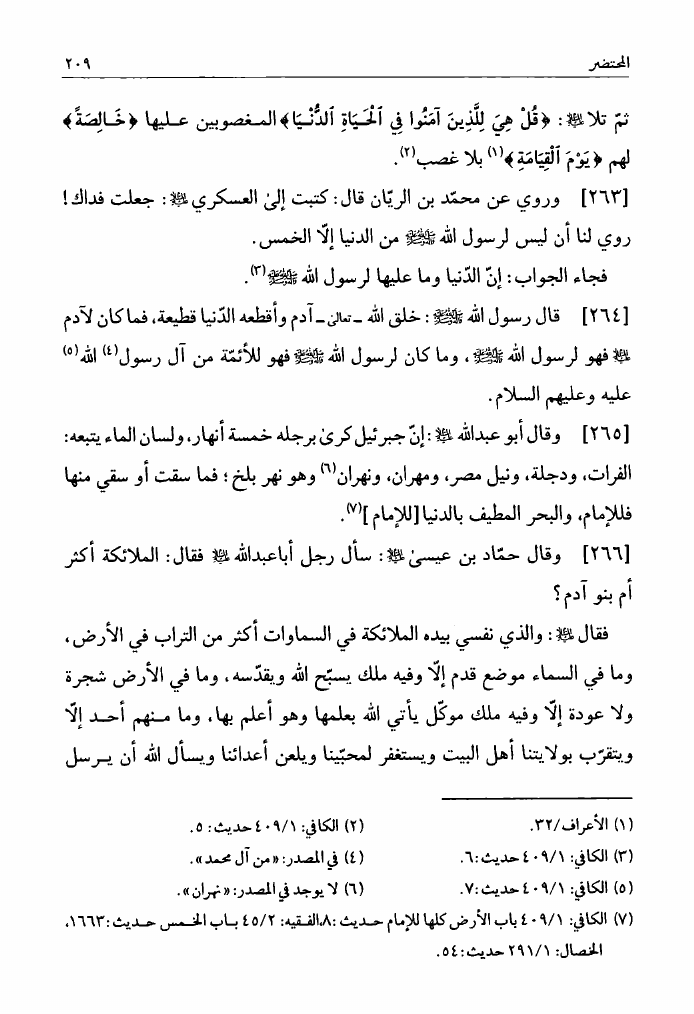 المحتضر ٢٠٩
ثمّ تلا ﵇: ﴿قُلْ هِيَ لِلَّذِينَ آمَنُوا فِي ٱلْحَيَاةِ ٱلدُّنْيَا﴾ المغصوبين عليها ﴿خَالِصَةً﴾
لهم ﴿يَوْمَ ٱلْقِيَامَةِ﴾(١) بلا غصب(٢).
[٢٦٣] وروي عن محمّد بن الريّان قال: كتبت إلىٰ العسكري ﵇: جعلت فداك!
روي لنا أن ليس لرسول الله ﷺ من الدنيا إلّا الخمس.
فجاء الجواب: إنّ الدّنيا وما عليها لرسول الله ﷺ(٣).
[٢٦٤] قال رسول الله ﷺ: خلق الله ـ تعالى ـ آدم وأقطعه الدّنيا قطيعة، فما كان لآدم
﵇ فهو لرسول الله ﷺ، وما كان لرسول الله ﷺ فهو للأئمّة من آل رسول(٤) الله(٥)
عليه وعليهم السلام.
[٢٦٥] وقال أبو عبدالله ﵇: إنّ جبرئيل كرىٰ برجله خمسة أنهار، ولسان الماء يتبعه:
الفرات، ودجلة، ونيل مصر، ومهران، ونهران(٦) وهو نهر بلخ؛ فما سقت أو سقي منها
فللإمام، والبحر المطيف بالدنيا [للإمام](٧).
[٢٦٦] وقال حمّاد بن عيسىٰ ﵇: سأل رجل أباعبدالله ﵇ فقال: الملائكة أكثر
أم بنو آدم؟
فقال ﵇: والذي نفسي بيده الملائكة في السماوات أكثر من التراب في الأرض،
وما في السماء موضع قدم إلّا وفيه ملك يسبّح الله ويقدّسه، وما في الأرض شجرة
ولا عودة إلّا وفيه ملك موكّل يأتي الله بعلمها وهو أعلم بها، وما منهم أحد إلّا
ويتقرّب بولايتنا أهل البيت ويستغفر لمحبّينا ويلعن أعدائنا ويسأل الله أن يرسل
(١) الأعراف/٣٢. (٢) الكافي: ٤٠٩/١ حديث: ٥.
(٣) الكافي: ٤٠٩/١ حديث: ٦. (٤) في المصدر: «من آل محمد».
(٥) الكافي: ٤٠٩/١ حديث: ٧. (٦) لا يوجد في المصدر: «نهران».
(٧) الكافي: ٤٠٩/١ باب الأرض كلها للإمام حديث: ٨، الفقيه: ٤٥/٢ باب الخمس حديث: ١٦٦٣،
الخصال: ٢٩١/١ حديث: ٥٤.